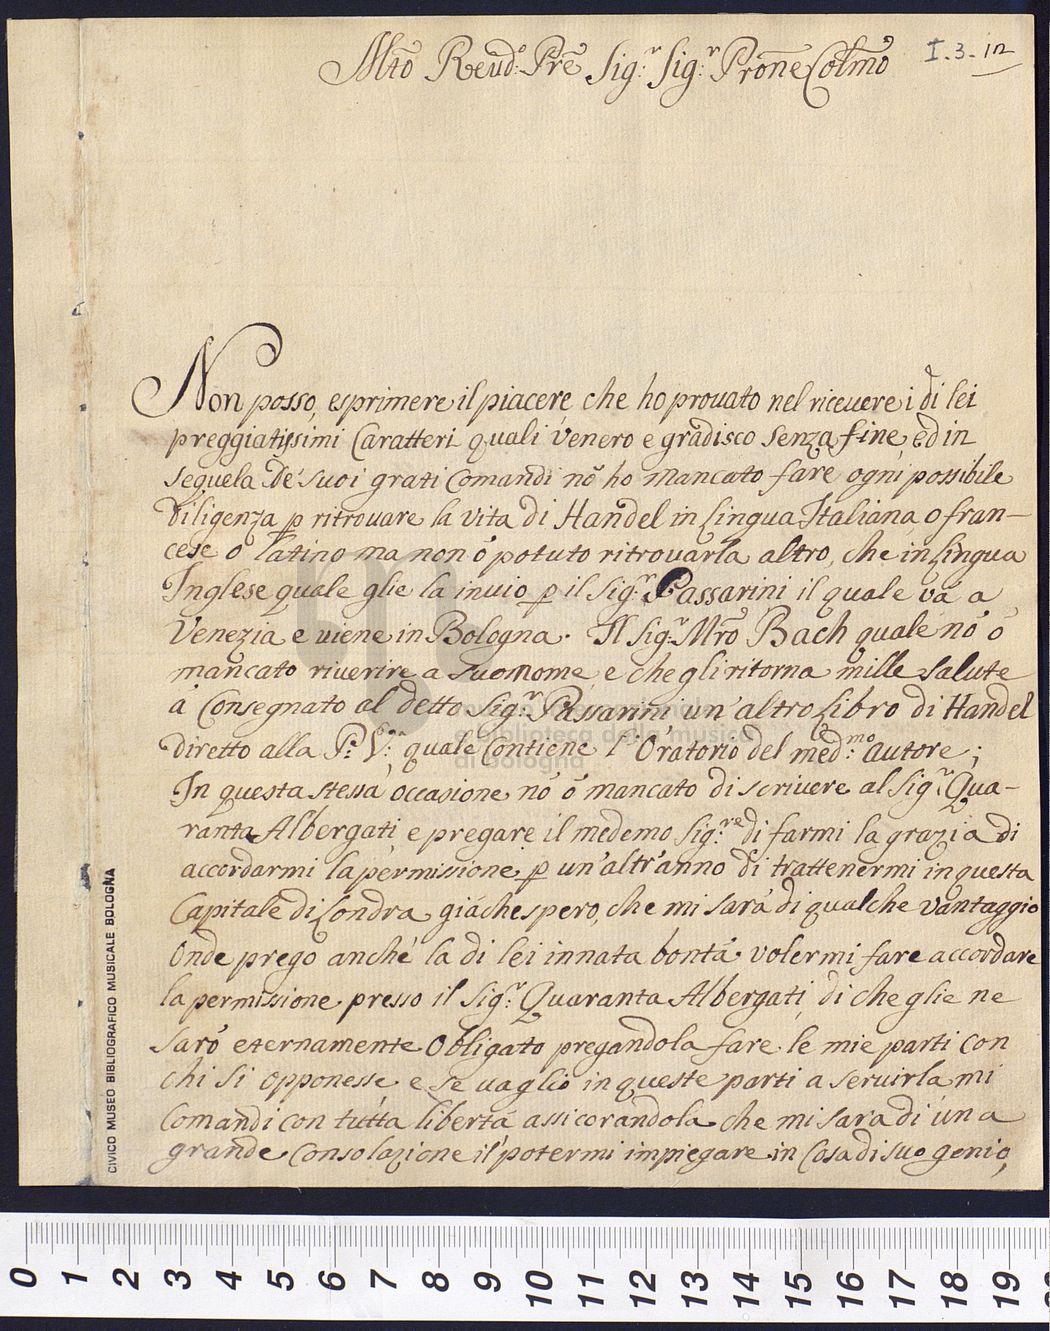 Mto Revd.o Pre Sig.r Sig.r Prone Colmo
I. 3. 112
Non posso esprimere il piacere che ho provato nel ricevere i di lei
preggiatissimi Caratteri quali venero e gradisco senza fine, ed in
sequela de' suoi grati Comandi nõ ho mancato fare ogni possibile
diligenza p ritrovare la vita di Handel in Lingua Italiana o fran-
cese o latino ma non ò potuto ritrovarla altro, che in Lingua
Inglese quale glie la invio p il Sig.r Passarini il quale và a
Venezia e viene in Bologna. Il Sig.r Mro Bach quale nõ ò
mancato riverire a suo nome, e che gli ritorna mille salute
à Consegnato al detto Sig.r Passarini un'altro Libro di Handel
diretto alla P. V. quale Contiene l'Oratorio del med.mo autore;
In questa stessa occasione nõ ò mancato di scrivere al Sig.r Qua-
ranta Albergati, e pregare il medemo Sig.re di farmi la grazia di
accordarmi la permissione p un'altr'anno di trattenermi in questa
Capitale di Londra giáche spero, che mi sará di qualche vantaggio
Onde prego anche la di lei innata bontá volermi fare accordare
la permissione presso il Sig.r Quaranta Albergati, di che glie ne
saró eternamente Obligato pregandola fare le mie parti con
chi si opponesse e se vaglio in queste parti a servirla mi
Comandi con tutta libertá assicorandola che mi sara di una
grande Consolazione il potermi impiegare in Cosa di suo genio,
CIVICO MUSEO BIBLIOGRAFICO MUSICALE BOLOGNA
museo internazionale
e biblioteca della musica
di bologna
0 1 2 3 4 5 6 7 8 9 10 11 12 13 14 15 16 17 18 19